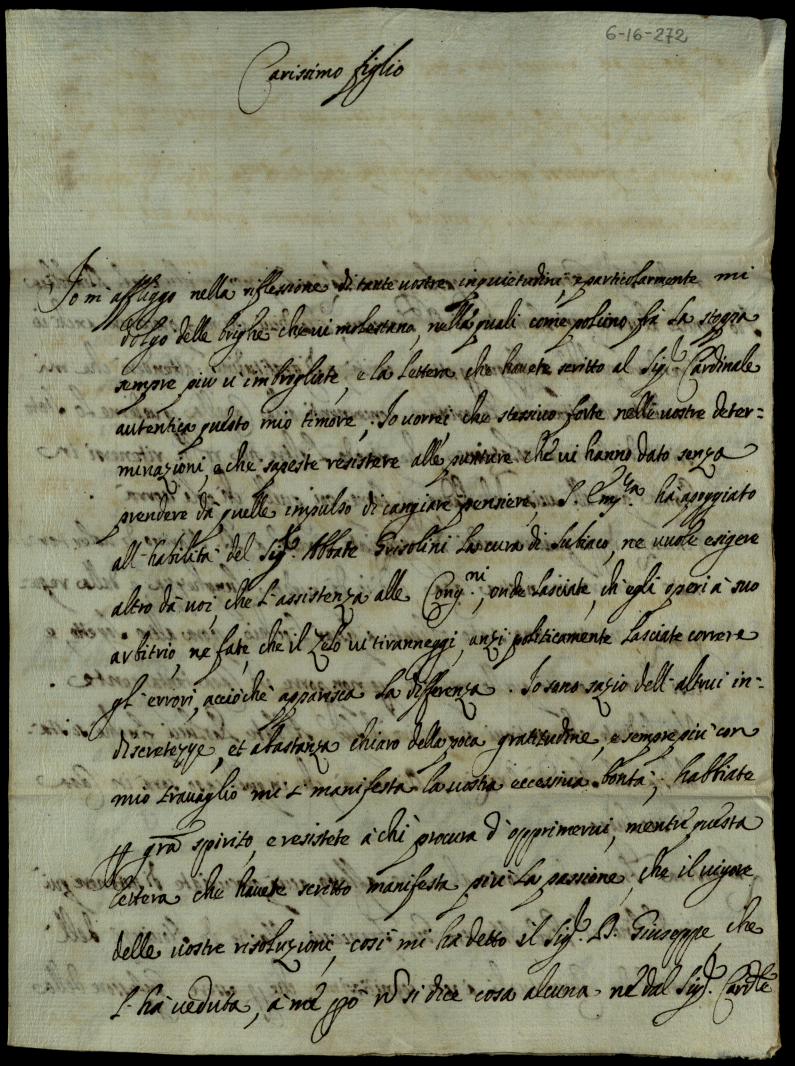 6-16-272
Carissimo figlio
Io m'affliggo nella riflessione di tante vostre inquietudini, e particolarmente mi
dolgo delle brighe che vi molestano, nella quali come polcino frà la stoppa
sempre più v'imbrogliate, e la lettera che havete scritto al Sig.r Cardinale
autentica questo mio timore; Io vorrei, che stessivo forte nelle vostre deter=
minazioni, e che sapeste resistere alle punture che vi hanno dato senza
prendere da quelle impulso di cangiare pensiere. S. Em.za ha appoggiato
all'habilità del Sig.r Abbate Grisolini la cura di Subiaco, ne vuole esigere
altro da voi, che l'assistenza alle Cong.ni, onde lasciate, ch'egli operi a suo
arbitrio, ne fate, che il zelo vi tiranneggi, anzi politicamente lasciate correre
gl'errori, acciò che apparisca la differenza. Io sono sazio dell'altrui in=
discretezze, et abastanza chiaro della poca gratitudine, e sempre più con
mio travaglio mi si manifesta la vostra eccessiva bontà; habbiate
grã spirito, e resistete à chi procura d'opprimervi, mentre questa
lettera che havete scritto manifesta più la passione, che il vigore
delle vostre risoluzioni, così mi ha detto il Sig.r D. Giuseppe, che
l'hà veduta, à me pò nõ si dice cosa alcuna ne dal Sig.r Card.le